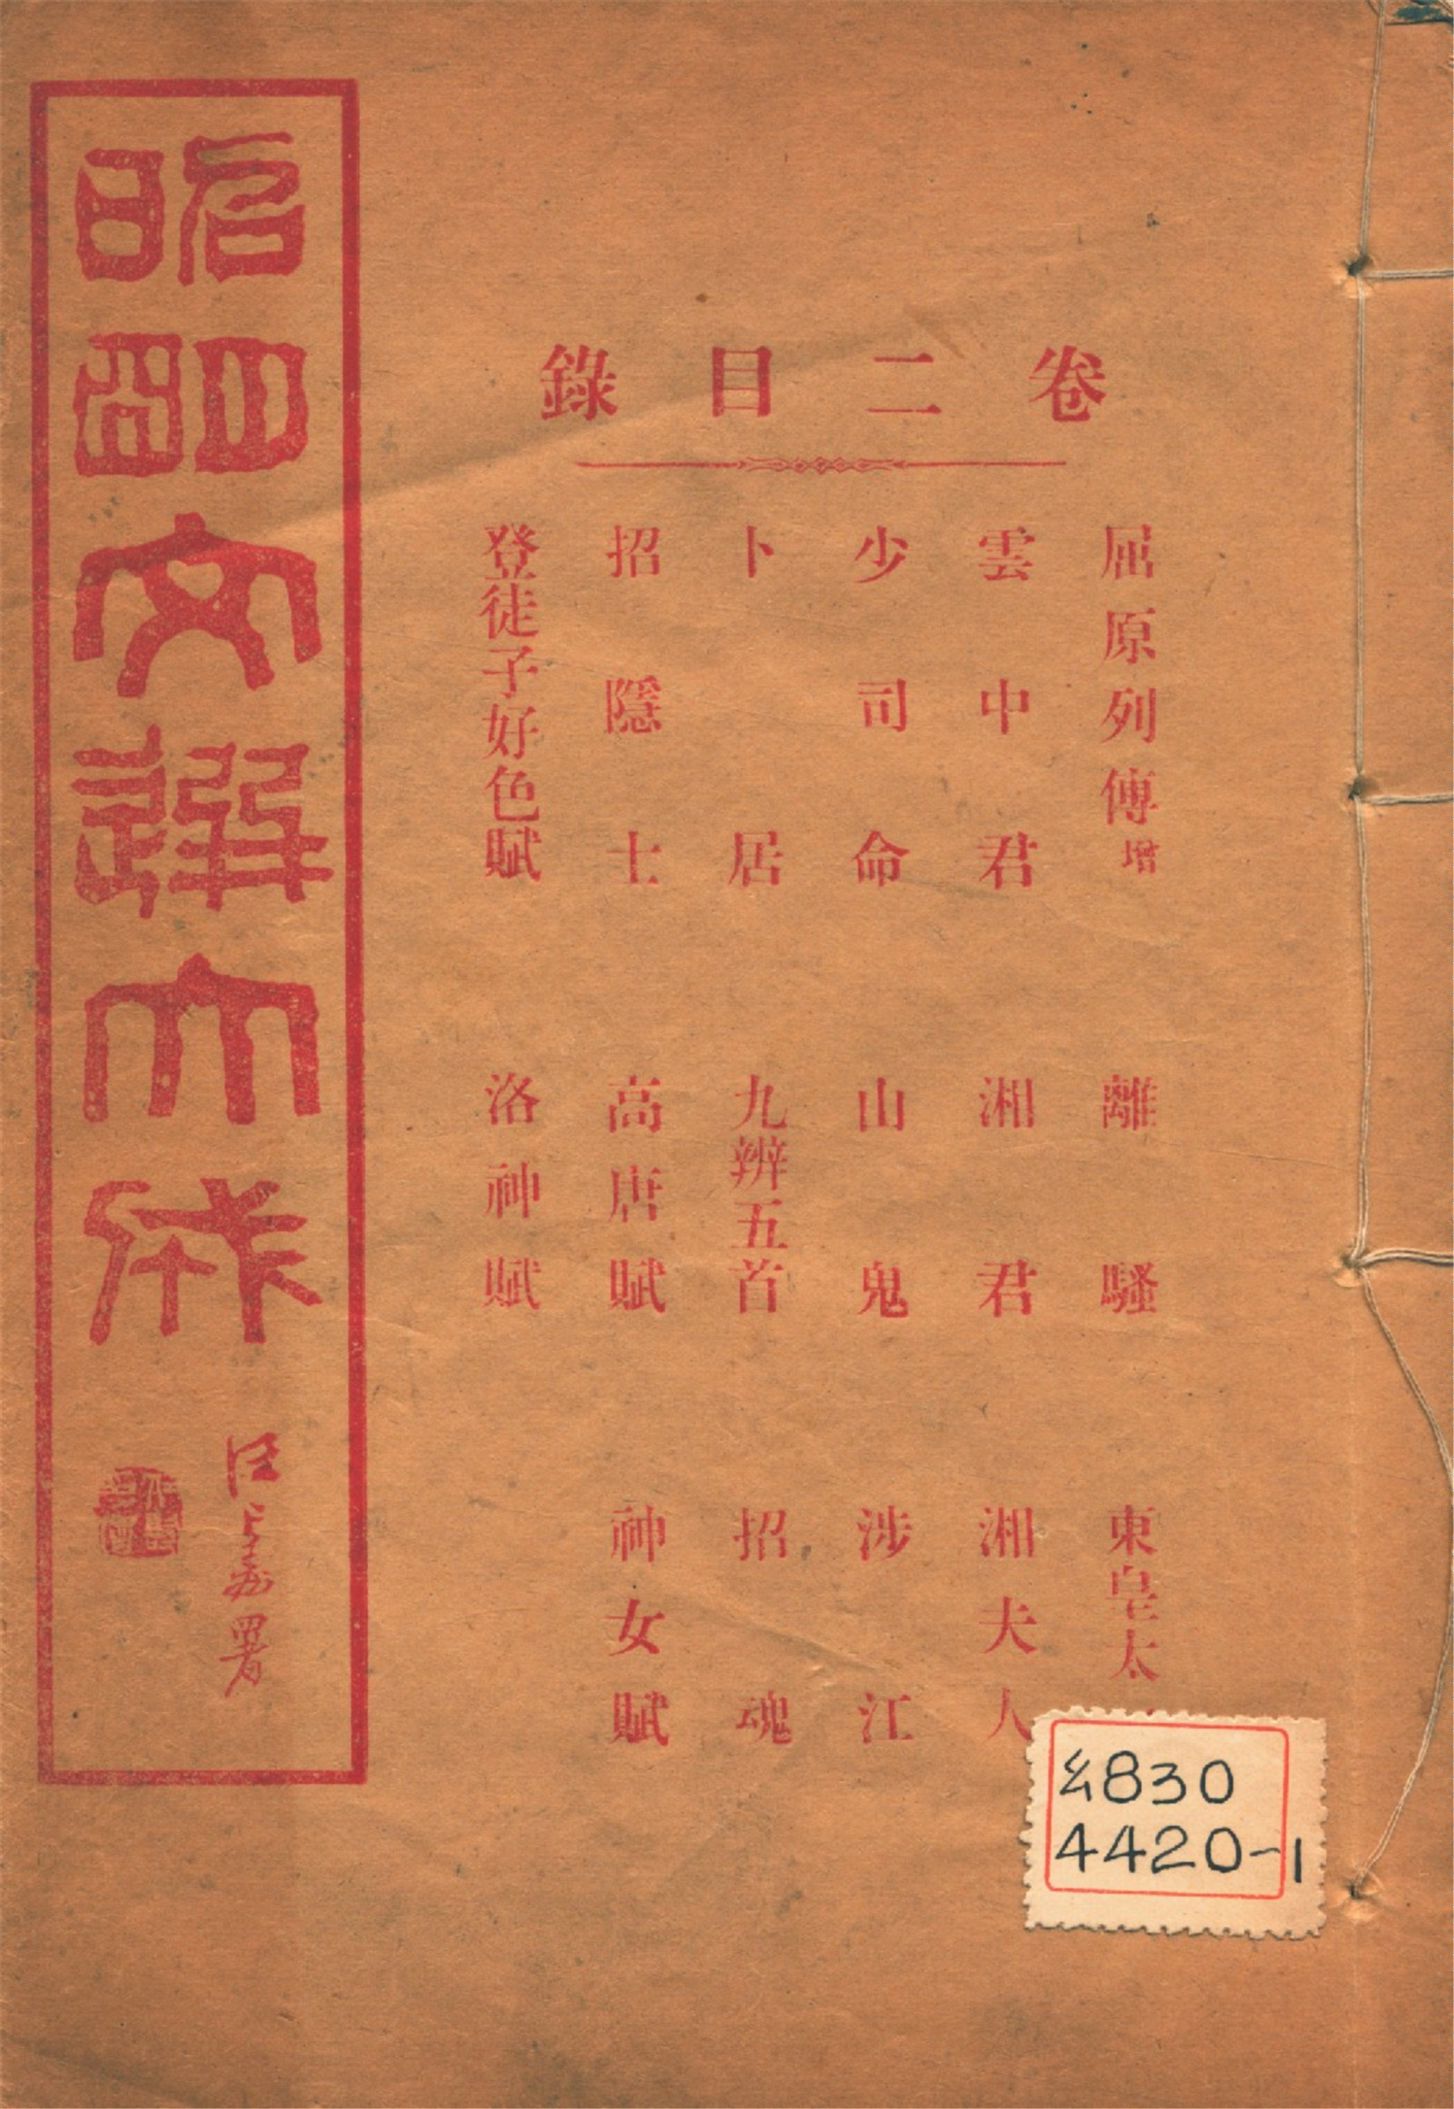 卷二目錄
屈原列傳增 離騷 東皇太
雲中君 湘君 湘夫人
少司命 山鬼 涉江
卜居 九辨五首 招魂
招隱士 高唐賦 神女賦
登徒子好色賦 洛神賦
昭明文選大成
汪 署
830
4420-1